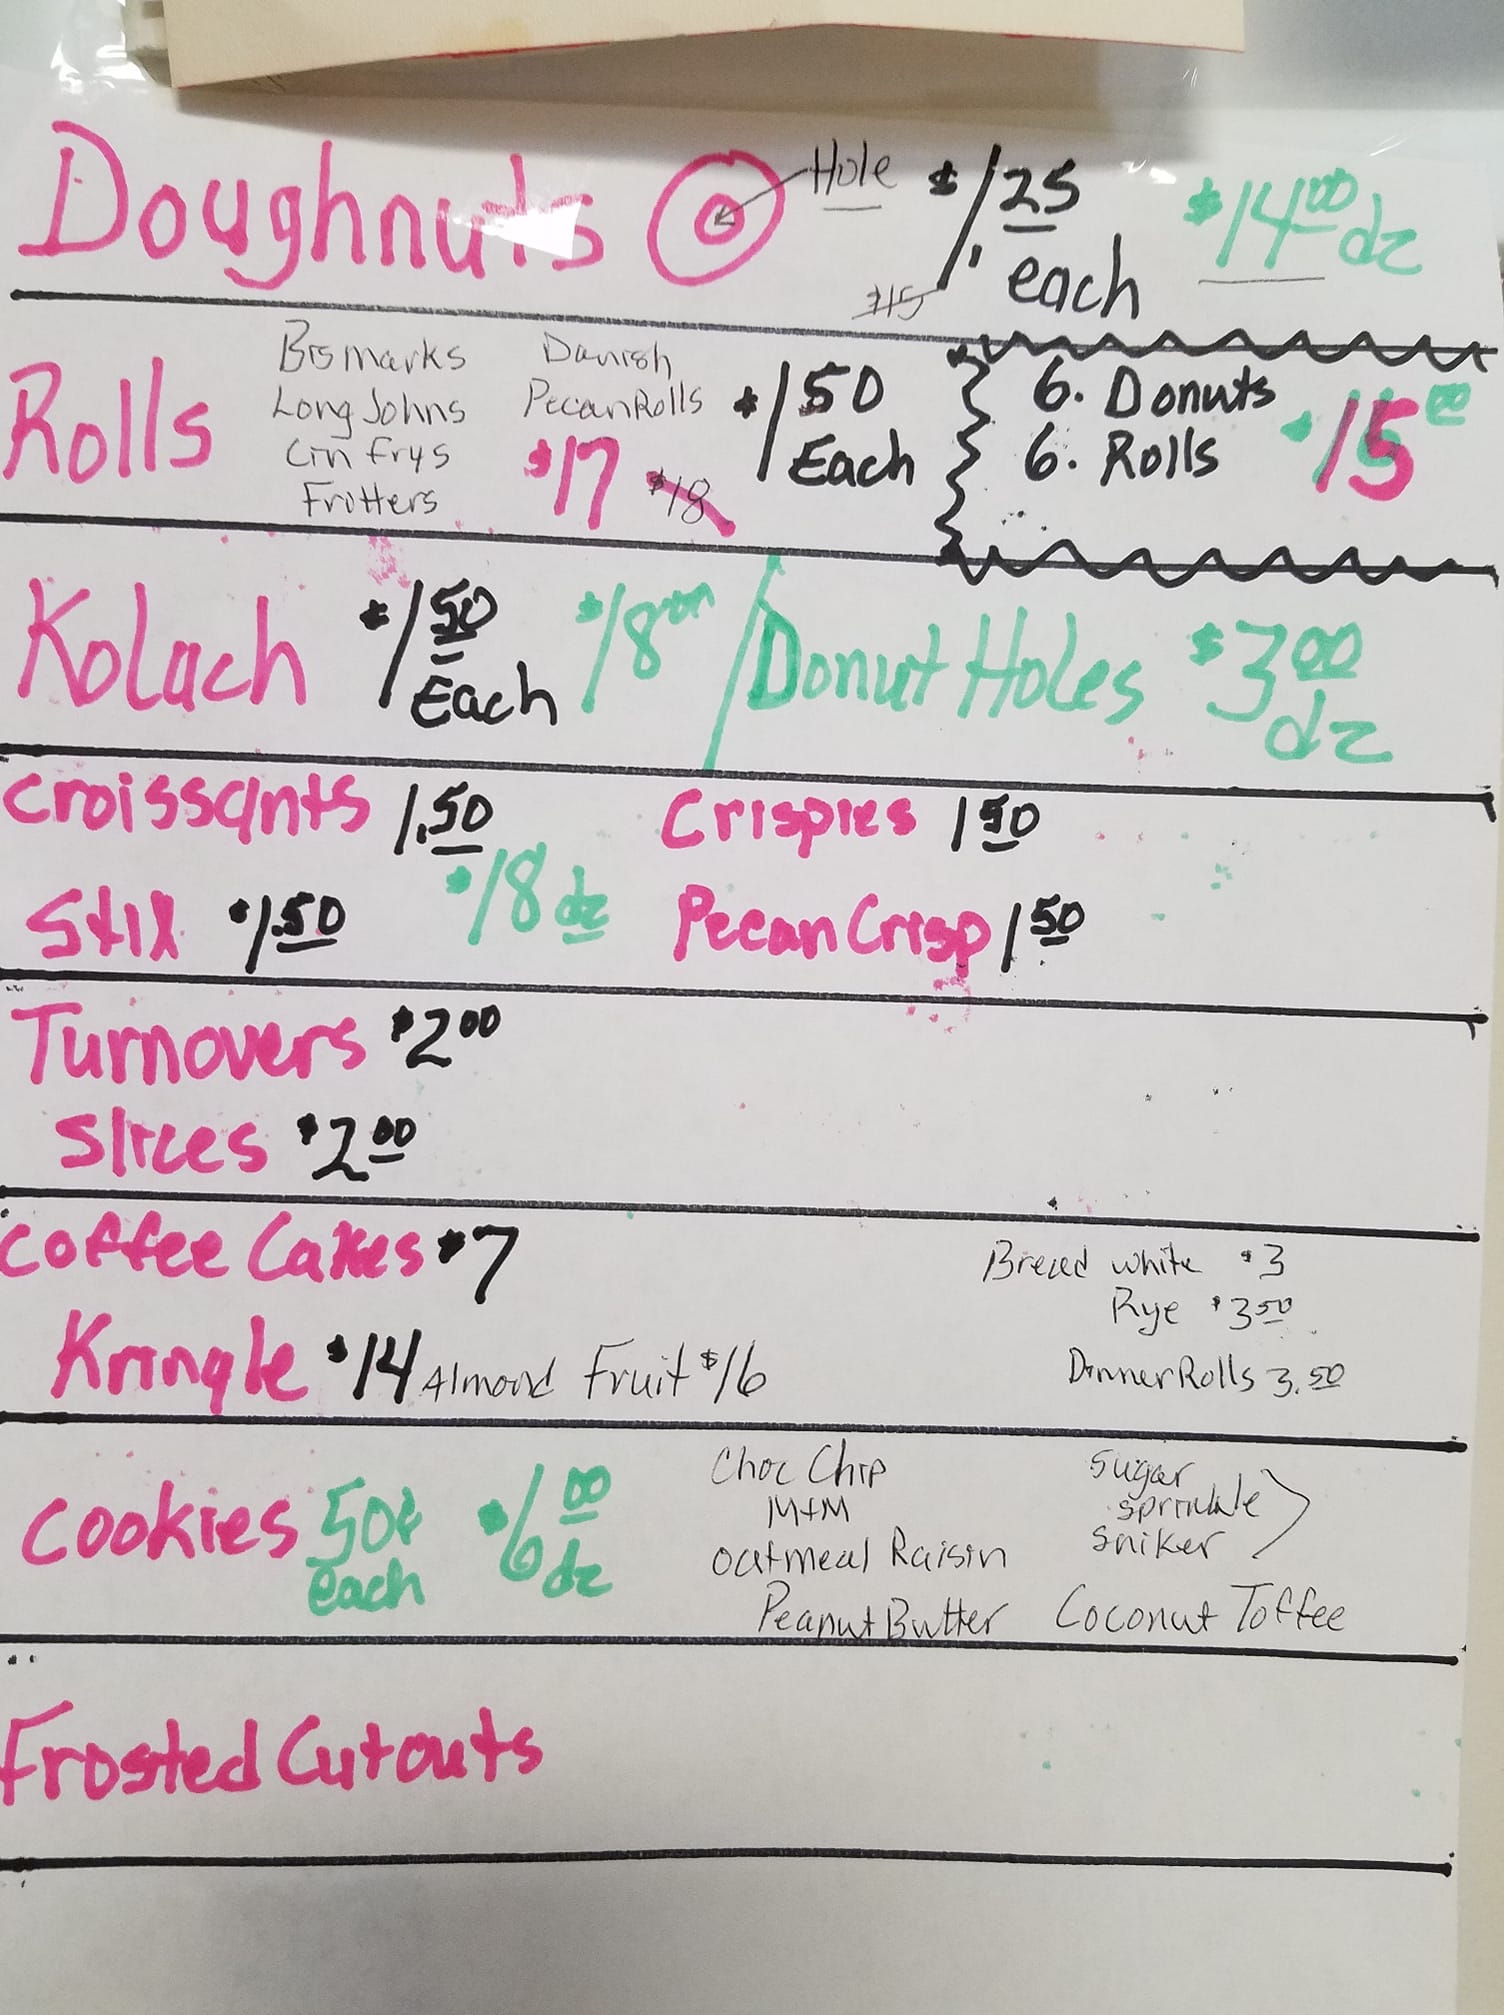 Doughnuts Hole $1.25 each $14.00 dz
$15
Rolls
Bismarks
Long Johns
Cin Frys
Fritters
Danish
Pecan Rolls
$17 $18
$1.50 Each
6. Donuts
6. Rolls
$15.00
Kolach $1.50 Each $18.00
Donut Holes $3.00 dz
Croissants 1.50
Crispies 1.50
Stix $1.50 $18 dz
Pecan Crisp 1.50
Turnovers $2.00
Slices $2.00
Coffee Cakes $7
Kringle $14 Almond Fruit $16
Bread white $3
Rye $3.50
Dinner Rolls 3.50
Cookies 50¢ each $6.00 dz
Choc Chip
M+M
oatmeal Raisin
Peanut Butter
Sugar
sprinkle
sniker
Coconut Toffee
Frosted Cutouts